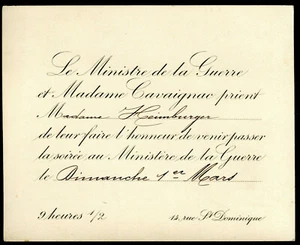 Le Ministre de la Guerre
et Madame Cavaignac prient
Madame Heimburger
de leur faire l'honneur de venir passer
la soirée au Ministère de la Guerre
le Dimanche 1er Mars
9 heures 1/2 14, rue St Dominique